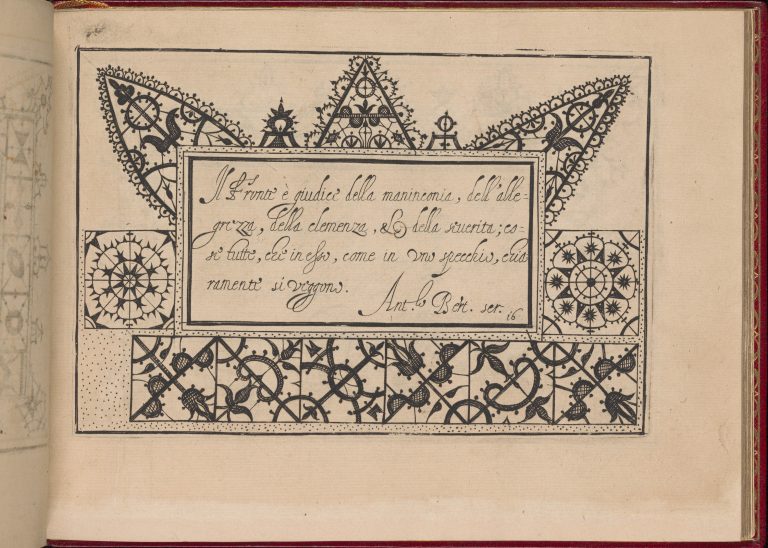 Il Fronte è giudice della maninconia, dell'alle-
grezza, della clemenza, & della seuerità; co-
se tutte, che in esso, come in vno specchio, chia-
ramente si veggono.
Ant.º Bett. scr.
16